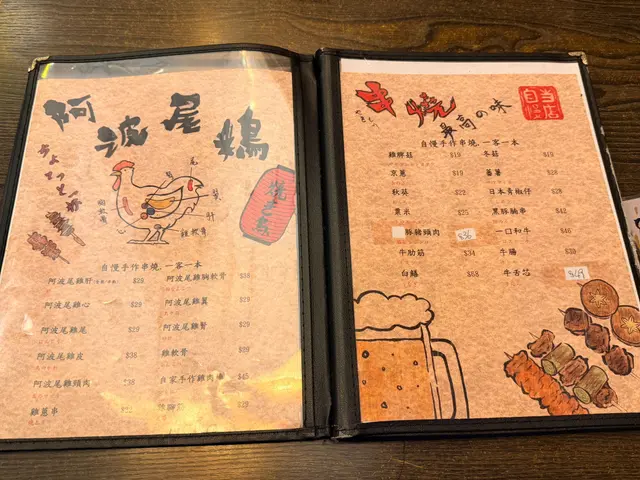 阿波尾鶏
ちょとっと、
焼とり
尾
肝
雞軟骨
自慢手作串燒,一客一本
阿波尾雞肝 $29
阿波尾雞胸軟骨 $38
阿波尾雞心 $29
阿波尾雞翼 $29
阿波尾雞尾 $29
阿波尾雞腎 $29
阿波尾雞皮 $38
雞軟骨 $29
阿波尾雞頸肉 $38
自家手作雞肉串 $45
雞葱串
串燒
最高の味
当店自慢
自慢手作串燒,一客一本
雞脾菇 $19
冬菇 $19
京葱 $19
蕃薯 $28
秋葵 $22
日本青椒仔 $28
粟米 $25
黑豚腩串 $42
豚豬頸肉 $36
一口和牛 $46
牛肋筋 $34
牛腸 $39
白鱔 $68
牛舌芯 $69